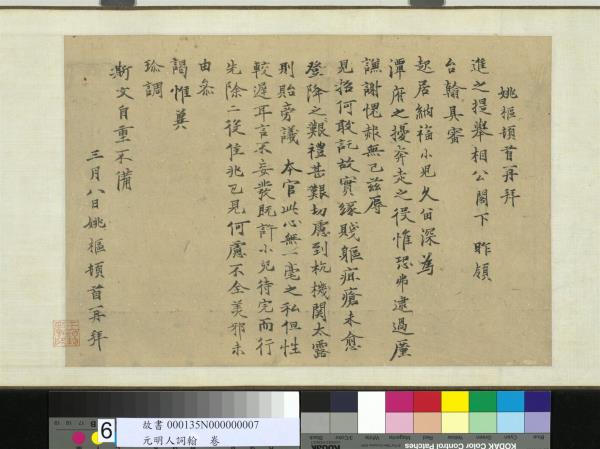 姚樞頓首再拜
進之提舉相公閣下昨領
台翰具審
起居納福小兒久留深為
潭府之擾奔走之役惟恐弗逮過蒙
謙謝愧赧無已茲辱
見招何敢託故實緣賤軀疟瘡未愈
登降之艱禮甚艱切慮到杭機関太露
則貽旁議本官此心無一毫之私但性
較遲耳言不妄發既許小兒待完而行
先除二從佳兆已見何慮不全美邪未
由叅
謁惟冀
珎調
漸文自重不備
三月八日姚樞頓首再拜
6
故書 000135N000000007
元明人詞翰 卷
KODAK Color Control Patches
Blue
Cyan
Green
Yellow
Red
Magenta
White
3/Color
Black